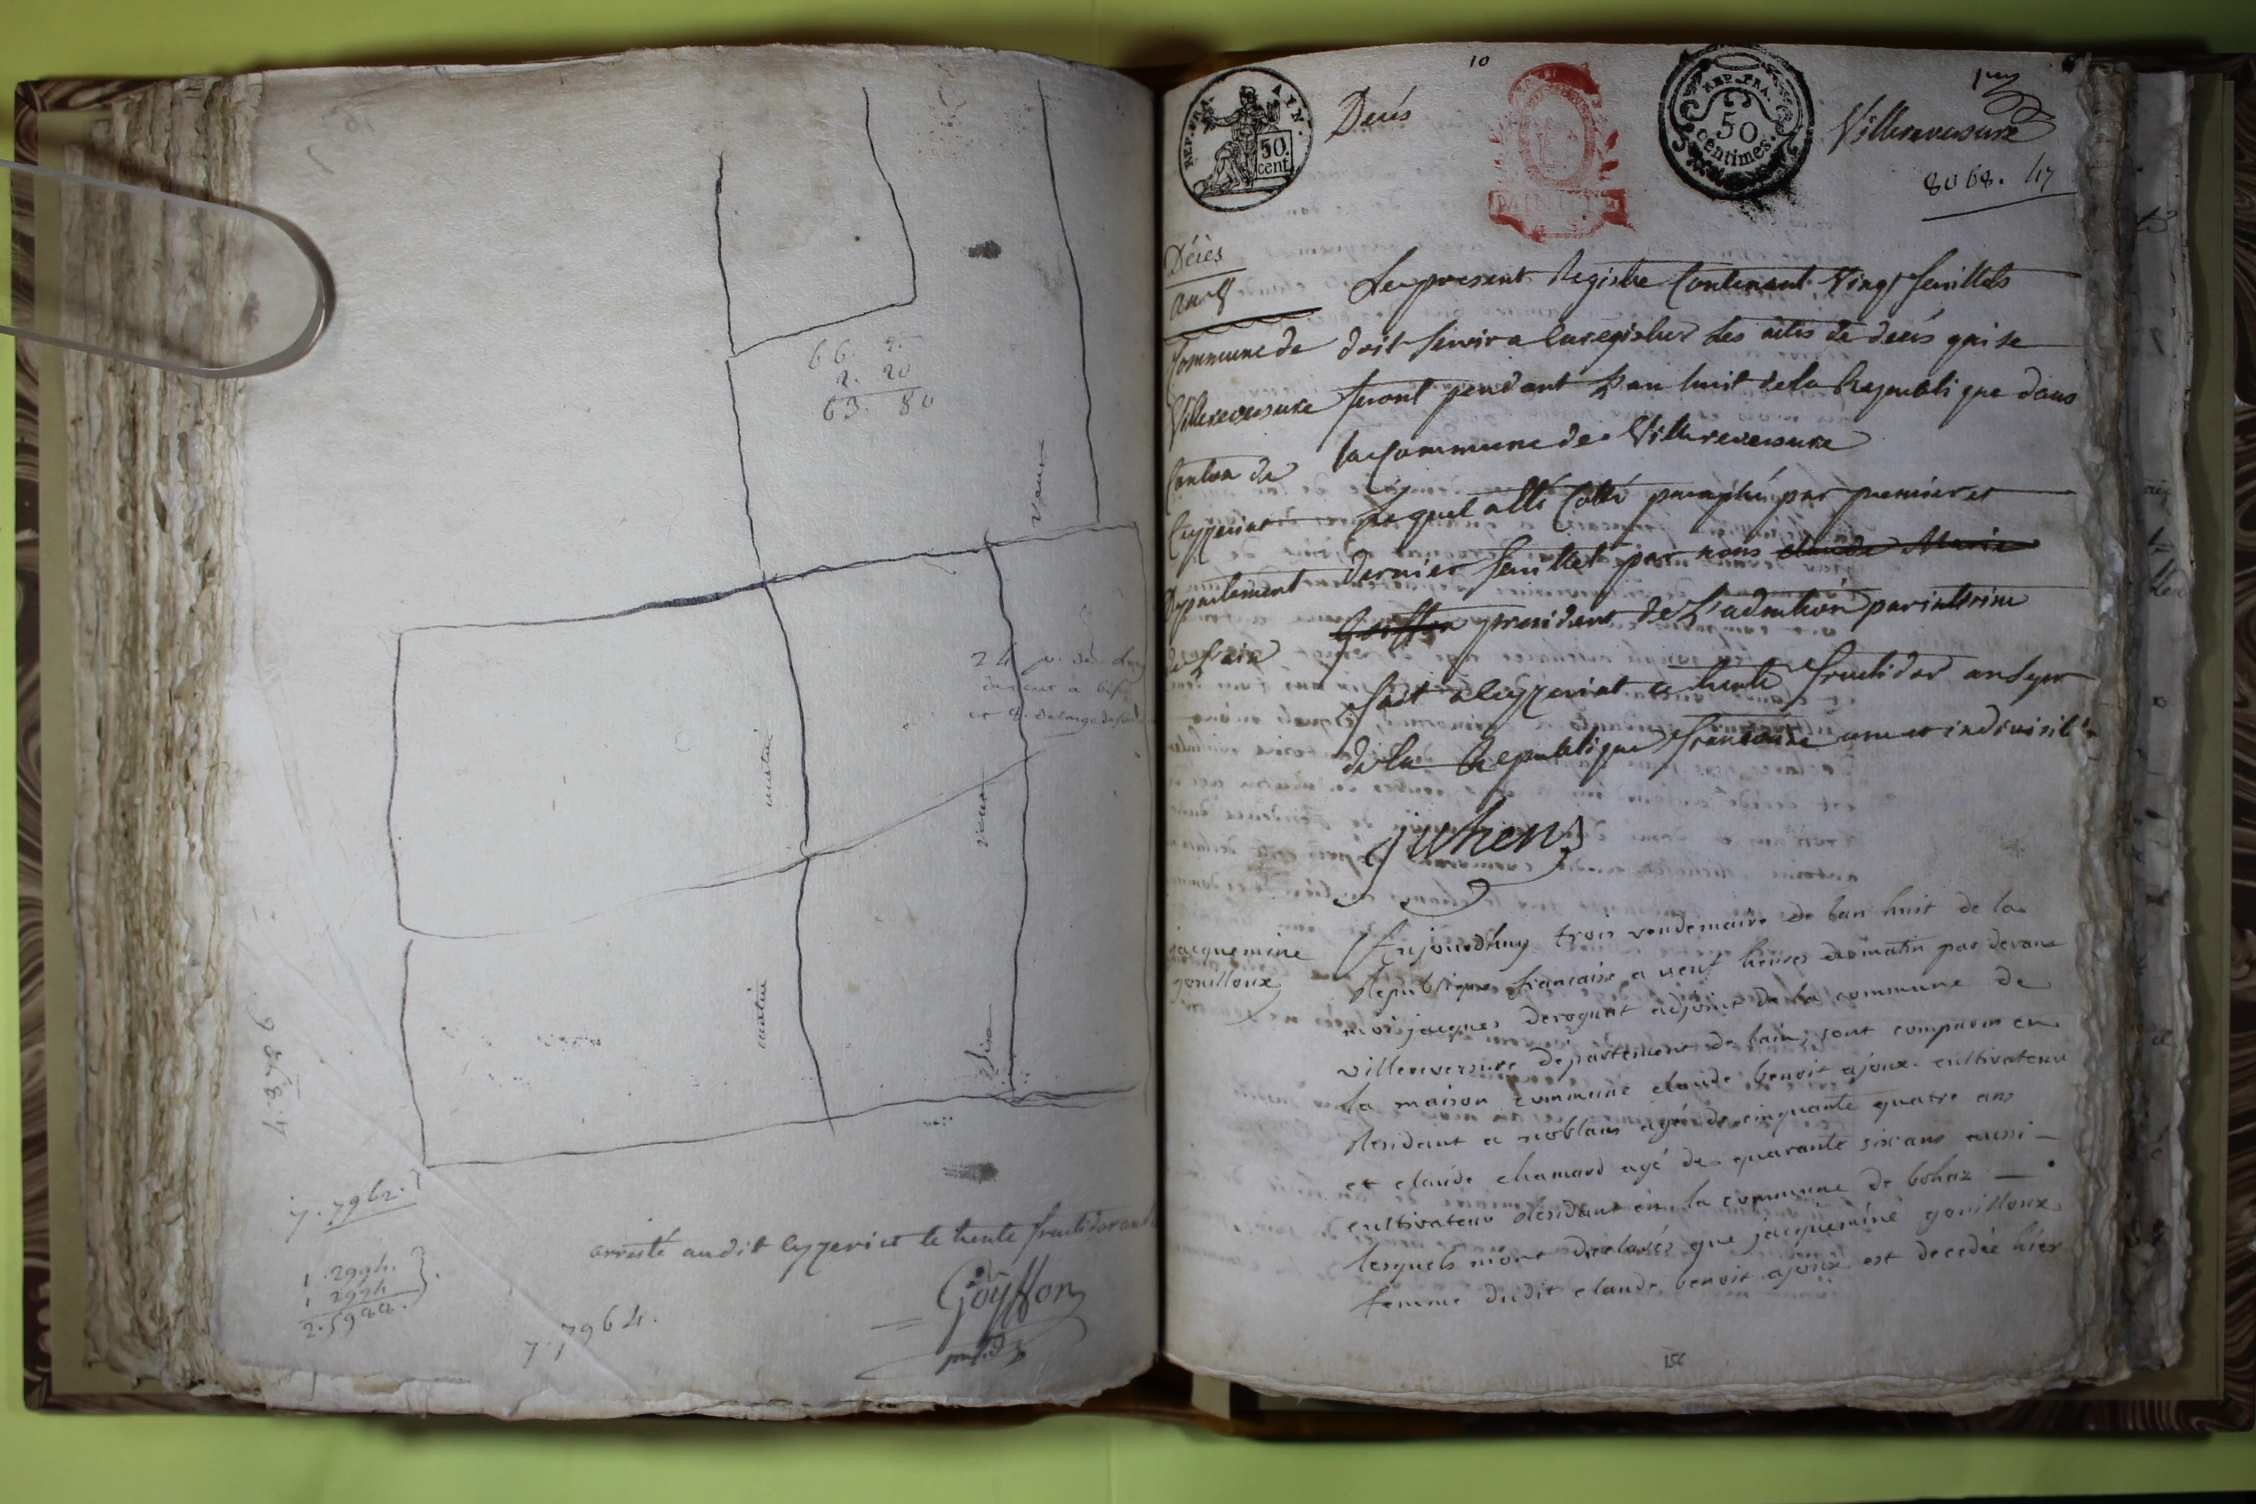 66.
2. 20
63. 80
vieux
24
matin
vieux
matin
7.7962.
1.2994.
1 2994
7.7964.
arresté audit Ceyzeriat le trente fructidor an
Goÿffon
presid
10
REP. FRA. AIN.
50.
cent
Décés
MINUTE
REP. FRA.
50
centimes.
1er
Villereversure
8068.
Décès
an 8
Commune de
Villereversure
Canton de
Ceyzeriat
Departement
de l'ain
Le present Registre Contenant Vingt feuillets
doit servir a Enregistrer Les actes de decés qui se
feront pendant L'an huit de la Republique dans
la Commune de Villereversure
Lequel a été Cotté paraphé par premier et
dernier feuillet par nous claude Marie
Goiffon president de L'admtion par interim
fait a Ceyzeriat le trente fructidor an sept
de la Republique francaise une et indivisible
juhen
jacquemine
gouilloux
Aujourdhuy trois vendemaire de lan huit de la
Republique francaise a neuf heures du matin par devant
moi jacques deroguat adjoint de la commune de
villereversure département de lain, sont comparus en
la maison commune claude benoit ajoux cultivateur
Residant a noblans agé de cinquante quatre ans
et claude chamard agé de quarante six ans aussi
cultivateur Residant en la commune de bohaz
lesquels mont declarés que jacquemine gouilloux
femme dudit claude benoit ajoux est decedée hier
156